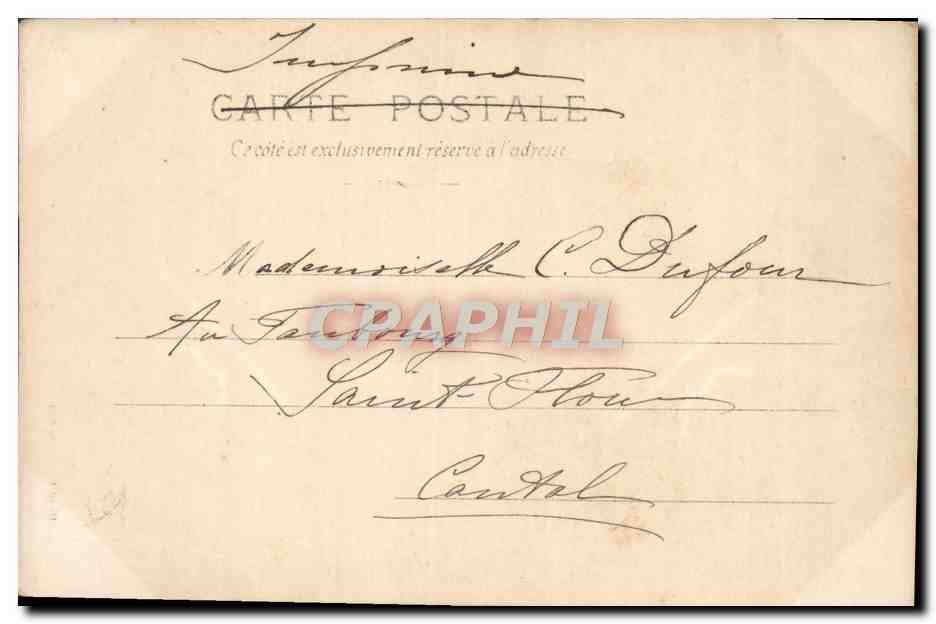 Imprimé
CARTE POSTALE
Ce côté est exclusivement réservé à l'adresse
Mademoiselle C. Dufour
Au Faubourg
CPARPHIL
Saint-Flour
Cantal